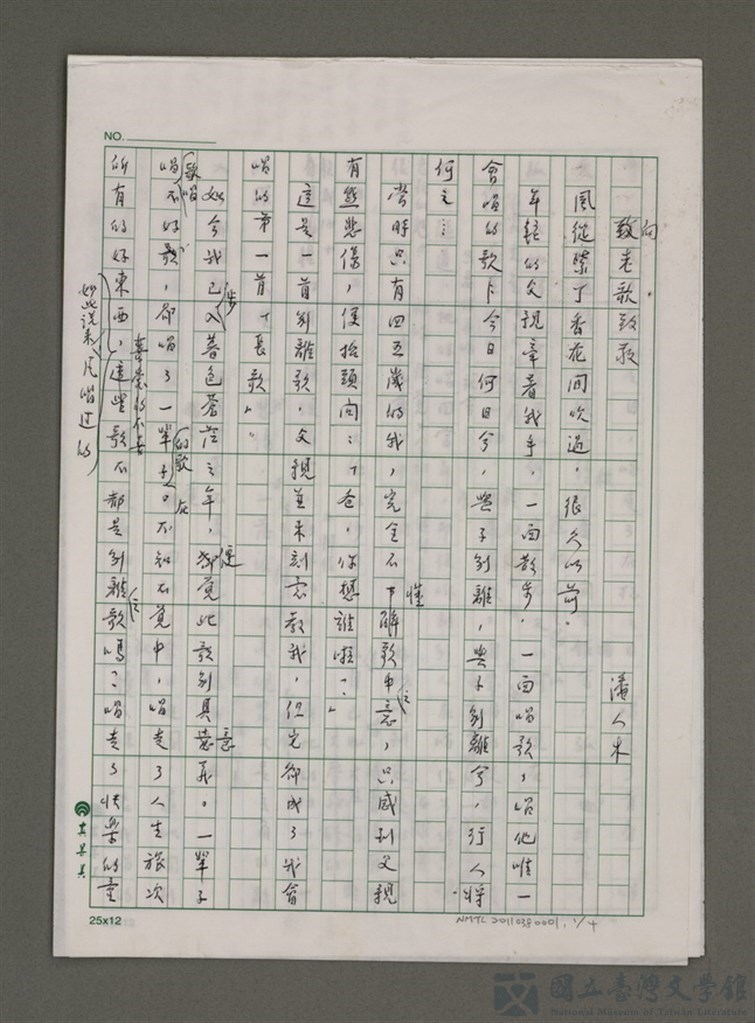 NO.
向
致老歌致敬
潘人木
風從紫丁香花間吹過,很久以前,
年輕的父親牽着我手,一面散步,一面唱歌,唱他唯一
會唱的歌「今日何日兮,與子別離,與子別離兮,行人將
何之……
當時只有四五歲的我,完全不懂了解歌中之意,只感到父親
有些悲傷,便抬頭問:「爸,你想誰啦?」
這是一首別離歌,父親並未刻意教我,但完卻成了我會
唱的第一首「長歌」。
如今我已步入暮色蒼茫之年,便感覺此歌別具意義。一輩子
歌唱
唱不好歌,卻唱了一輩子的歌。在不知不覺中,唱走了人生旅次
喜樂的不是
所有的好東西,這些歌不都是別離之歌嗎?唱走了快樂的童
妙些說來凡唱過的
25x12
NMTL 20110380001, 1/4
國立臺灣文學館
National Museum of Taiwan Literature